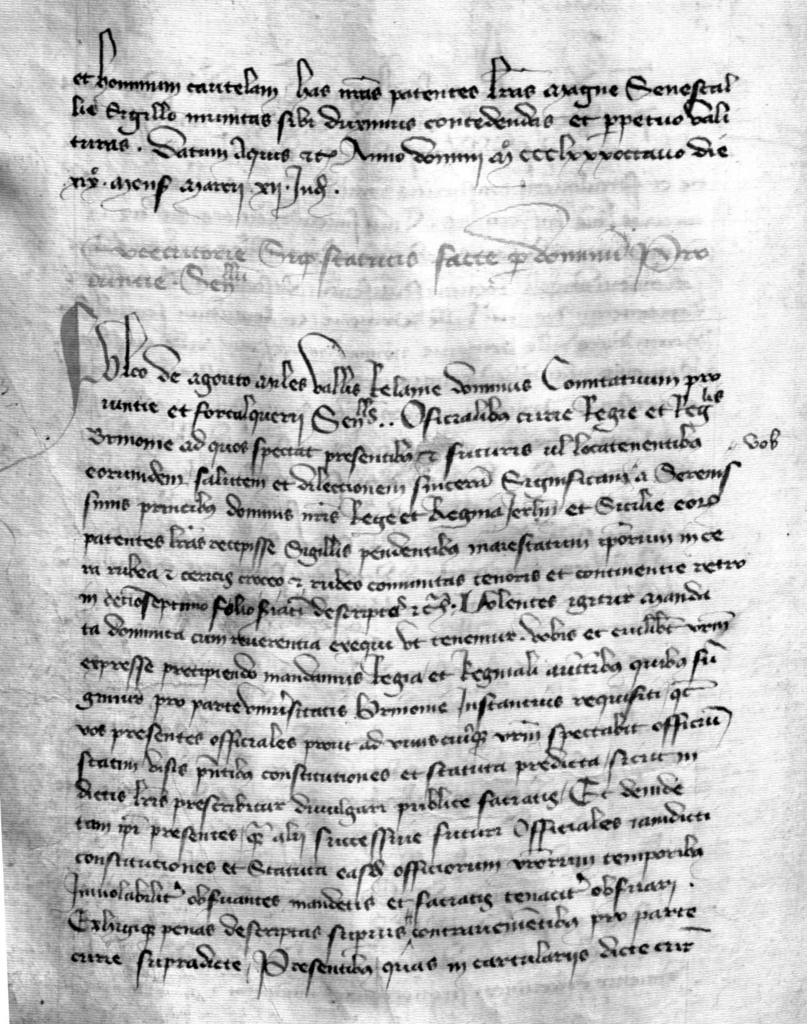 et hominum cautelam has nr̄as patentes lrās magne Senescal
lie Sigillo munitas sibi duximus concedendas et ꝑpetuo vali
turas. Datum Aquis etc̄ Anno domini Mº ccclxxxoctavo die
xixº. mens̄ marcii xii. Ind̄.
Executorie Suꝑ statutis facte ꝑ dominū Pro
vincie. Senllū
Fulco de agouto miles vallis Relanie dominus Comitatuum pro
vincie et forcalquerii Senlls̄.. Officialibꝫ curie Regie et Reglis
Brinonie ad quos spectat presentibꝫ et futuris vel locatenentibꝫ
eorumdem salutem et dilectionem sincerā Significam̄ vob a Serenis
simis principibꝫ dominis nr̄is Rege et Regina Jerlm̄ et Sicilie eorū
patentes lrās recepisse Sigillis pendentibꝫ maiestatum ip̄orum in ce
ra rubea et cericis croceo et rubeo communitas tenoris et continentie retro
in decioseptimo folio descriptoꝝ etc̄. Volentes igitur manda
ta dominica cum reverentia exequi ut tenemur. vobis et cuilibꝫ vr̄m
expresse precipiendo mandamus Regia et Reginali auctītibꝫ quibꝫ fū
gimur pro parte univ̄sitatis Brinonie Instantius requisiti qꝫ
vos presentes officiales prout ad uniuscuiusqꝫ vr̄m spectabit officiū
statim visis pn̄tibꝫ constitutiones et statuta predicta, sicut in
dictis lrīs prescribitur divulgari publice faciatis, Et deinde
tam ip̄i presentes qꝫ alii successive futuri Officiales iamdicti
constitutiones et Statuta easdē officiorum vr̄orum temporibꝫ
Inviolabilit̄ obs̄vantes mandetis et faciatis tenacit̄ obs̄vari.
Exhigiqꝫ penas descriptas superius contravenientibꝫ pro parte
curie supradicte, Presentibꝫ, quas in cartulariis dicte curie